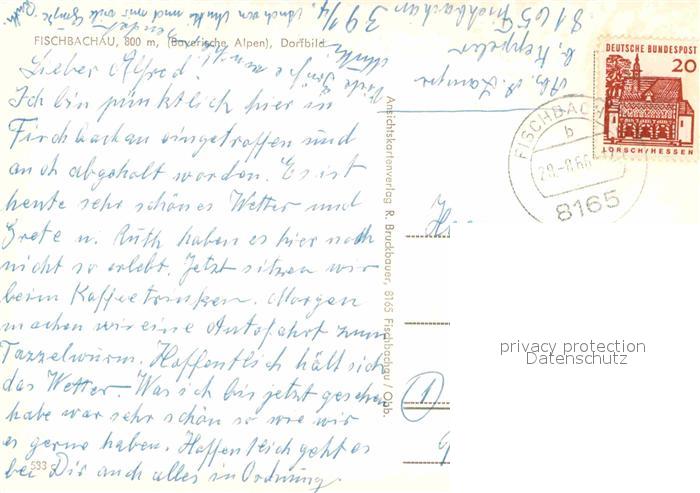 FISCHBACHAU, 800 m, (Bayerische Alpen), Dorfbild
Lieber Alfred
Ich bin pünktlich hier in
Fischbachau eingetroffen und
auch abgeholt worden. Es ist
heute sehr schönes Wetter und
Grete u. Ruth haben es hier noch
nicht so erlebt. Jetzt sitzen wir
beim Kaffeetrinken. Morgen
machen wir eine Autofahrt zum
Tazzelwurm. Hoffentlich hält sich
das Wetter. Was ich bis jetzt gesehen
habe war sehr schön so wie wir
es gerne haben. Hoffentlich geht es
bei Dir auch alles in Ordnung.
533 c
Ansichtskartenverlag R. Bruckbauer, 8165 Fischbachau/Obb.
8165 Fischbachau 39 1/4
b. Keppeler
DEUTSCHE BUNDESPOST
20
LORSCH/HESSEN
FISCHBACHAU
b
8165
1
privacy protection
Datenschutz